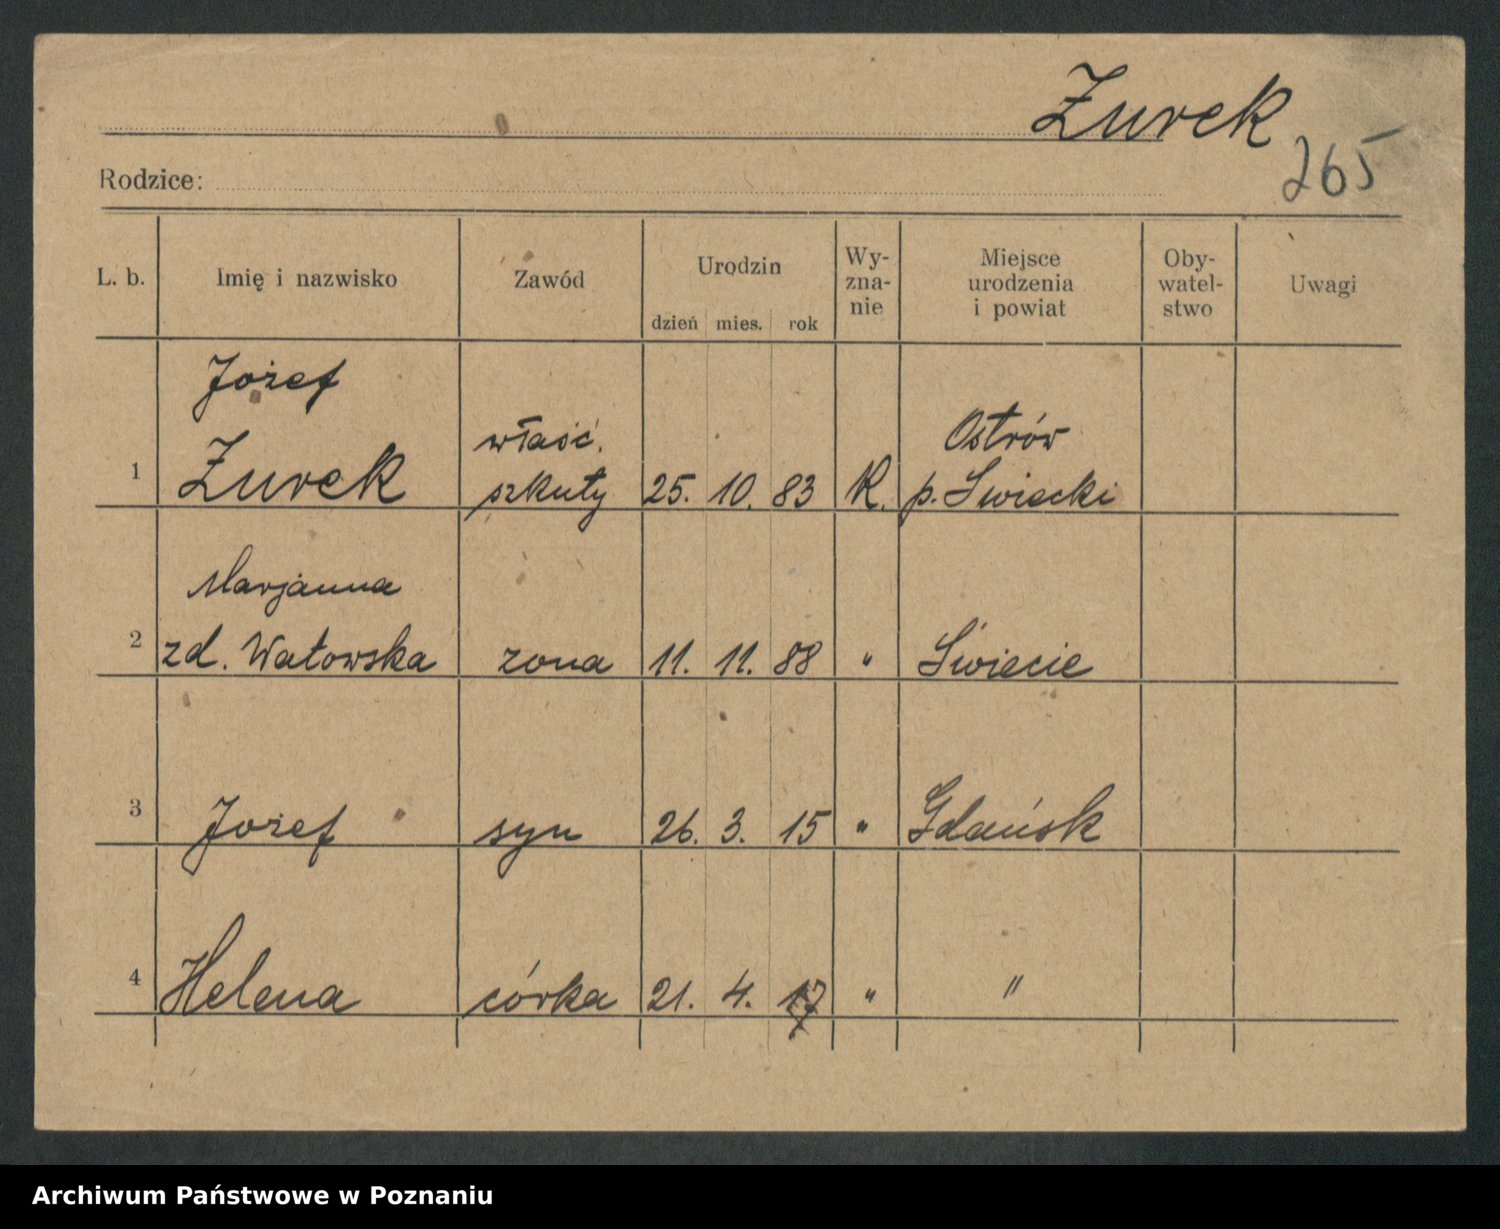 Żurek
265
Rodzice:
L. b. Imię i nazwisko Zawód Urodzin dzień mies. rok Wy-zna-nie Miejsce urodzenia i powiat Oby-watel-stwo Uwagi
Józef
właść. Ostrów
1 Żurek szkuty 25. 10. 83 R. p. Świecki
Marjanna
2 zd. Watowska żona 11. 11. 88 " Świecie
3 Józef syn 26. 3. 15 " Gdańsk
4 Helena córka 21. 4. "  "
Archiwum Państwowe w Poznaniu